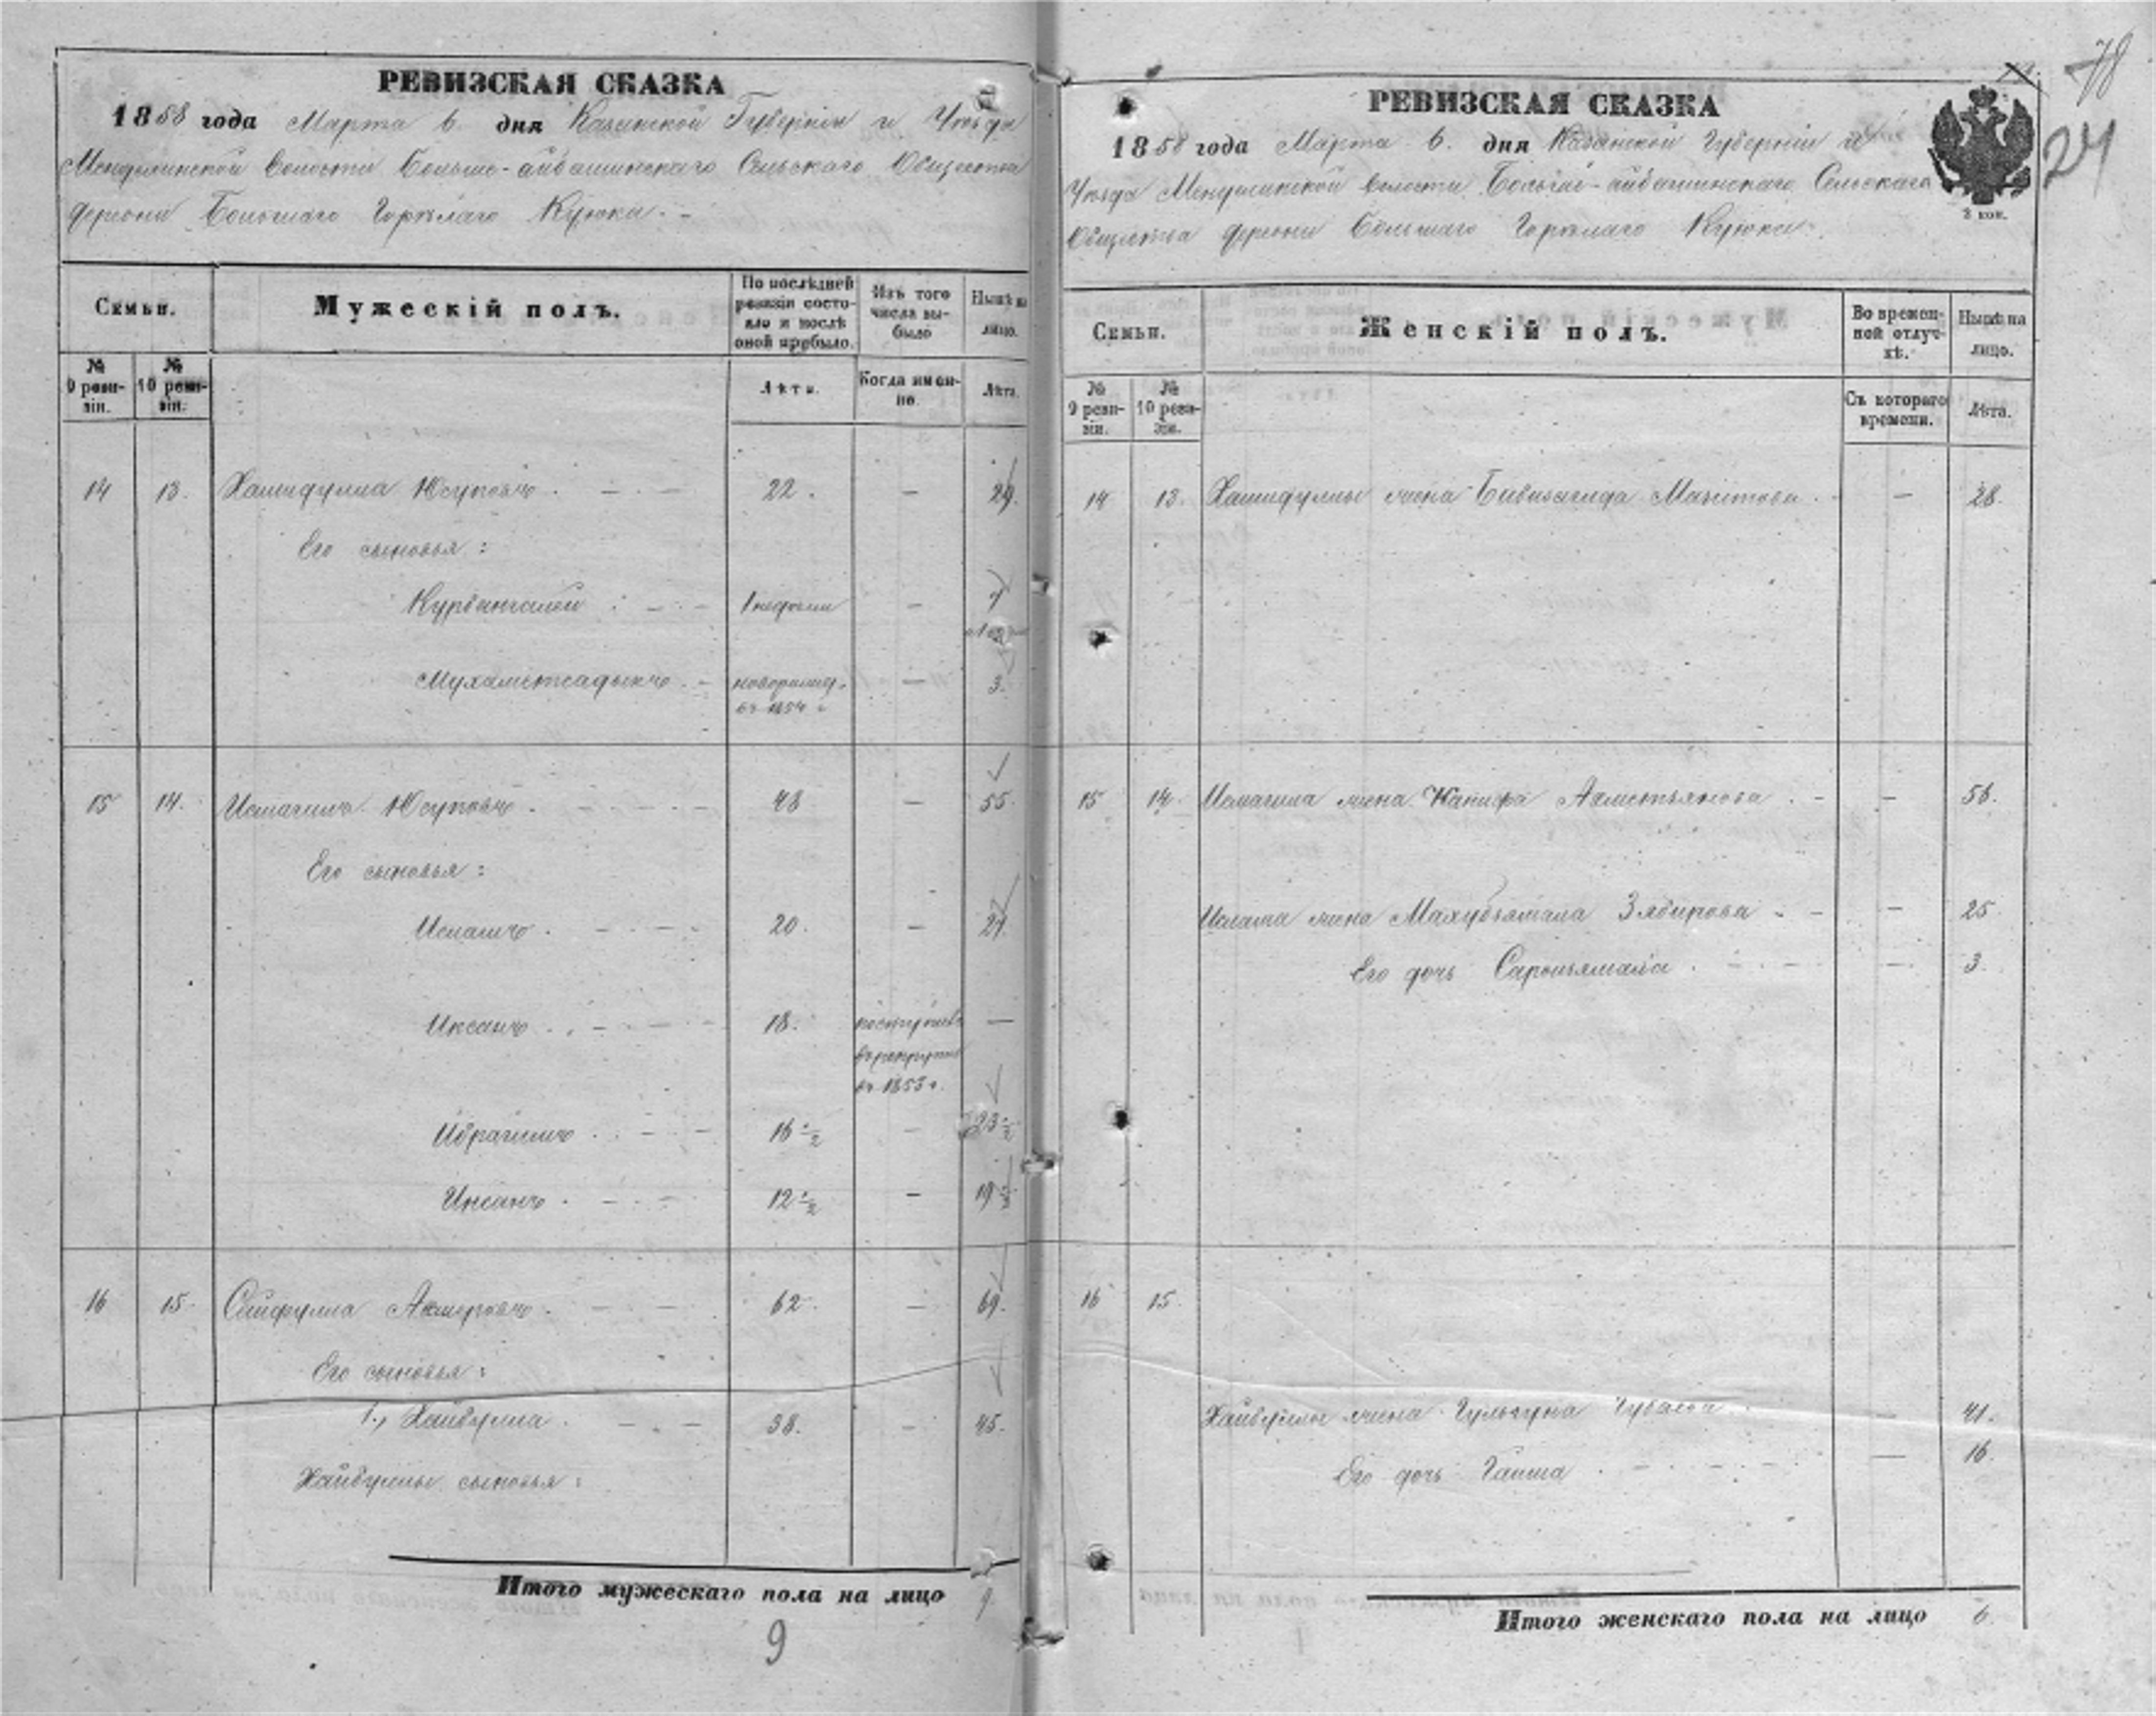 РЕВИЗСКАЯ СКАЗКА
1858 года Марта 6. дня Казанской Губернiи и Уѣзда
волости Больше-айбашинскаго Сельскаго Общества
деревни Большаго Горѣлаго Куюка.
Семьи.
Мужескiй полъ.
По послѣдней ревизiи состояло и послѣ оной прибыло.
Изъ того числа выбыло
Нынѣ на лицо.
№ 9 ревизiи.
№ 10 ревизiи.
Лѣта.
Когда именно.
Лѣта.
14 13. Хашидулла Юсуповъ. 22. — 29.
Его сыновья:
Курбангалей 1 недѣли — 7
Мухаметсадыкъ новорожд. — 3.
въ 1854 г
15 14. Исмагилъ Юсуповъ. 48 — 55.
Его сыновья:
Исламъ. 20. — 27.
Иксанъ 18. поступилъ —
въ рекруты
въ 1853 г.
Ибрагимъ 16 1/2 — 23 1/2
Инсанъ 12 1/2 — 19 1/2
16 15. Сайфулла Амировъ. 62. — 69.
Его сыновья:
1., Хайбулла. 38. — 45.
Хайбуллы сыновья:
Итого мужескаго пола на лицо 9.
9
78
24
РЕВИЗСКАЯ СКАЗКА
1858 года Марта 6. дня Казанской Губернiи и
Уѣзда волости Больше-айбашинскаго Сельскаго
Общества деревни Большаго Горѣлаго Куюка.
3 коп.
Семьи.
Женскiй полъ.
Во временной отлучкѣ.
Нынѣ на лицо.
№ 9 ревизiи.
№ 10 ревизiи.
Съ котораго времени.
Лѣта.
14 13. Хашидуллы жена Мазитова. — 28.
15 14. Исмагила жена Ахметьянова. — 56.
Ислама жена Забирова — 25
Его дочь — 3.
16 15.
Хайбуллы жена — 41.
Его дочь Гайша — 16.
Итого женскаго пола на лицо 6.